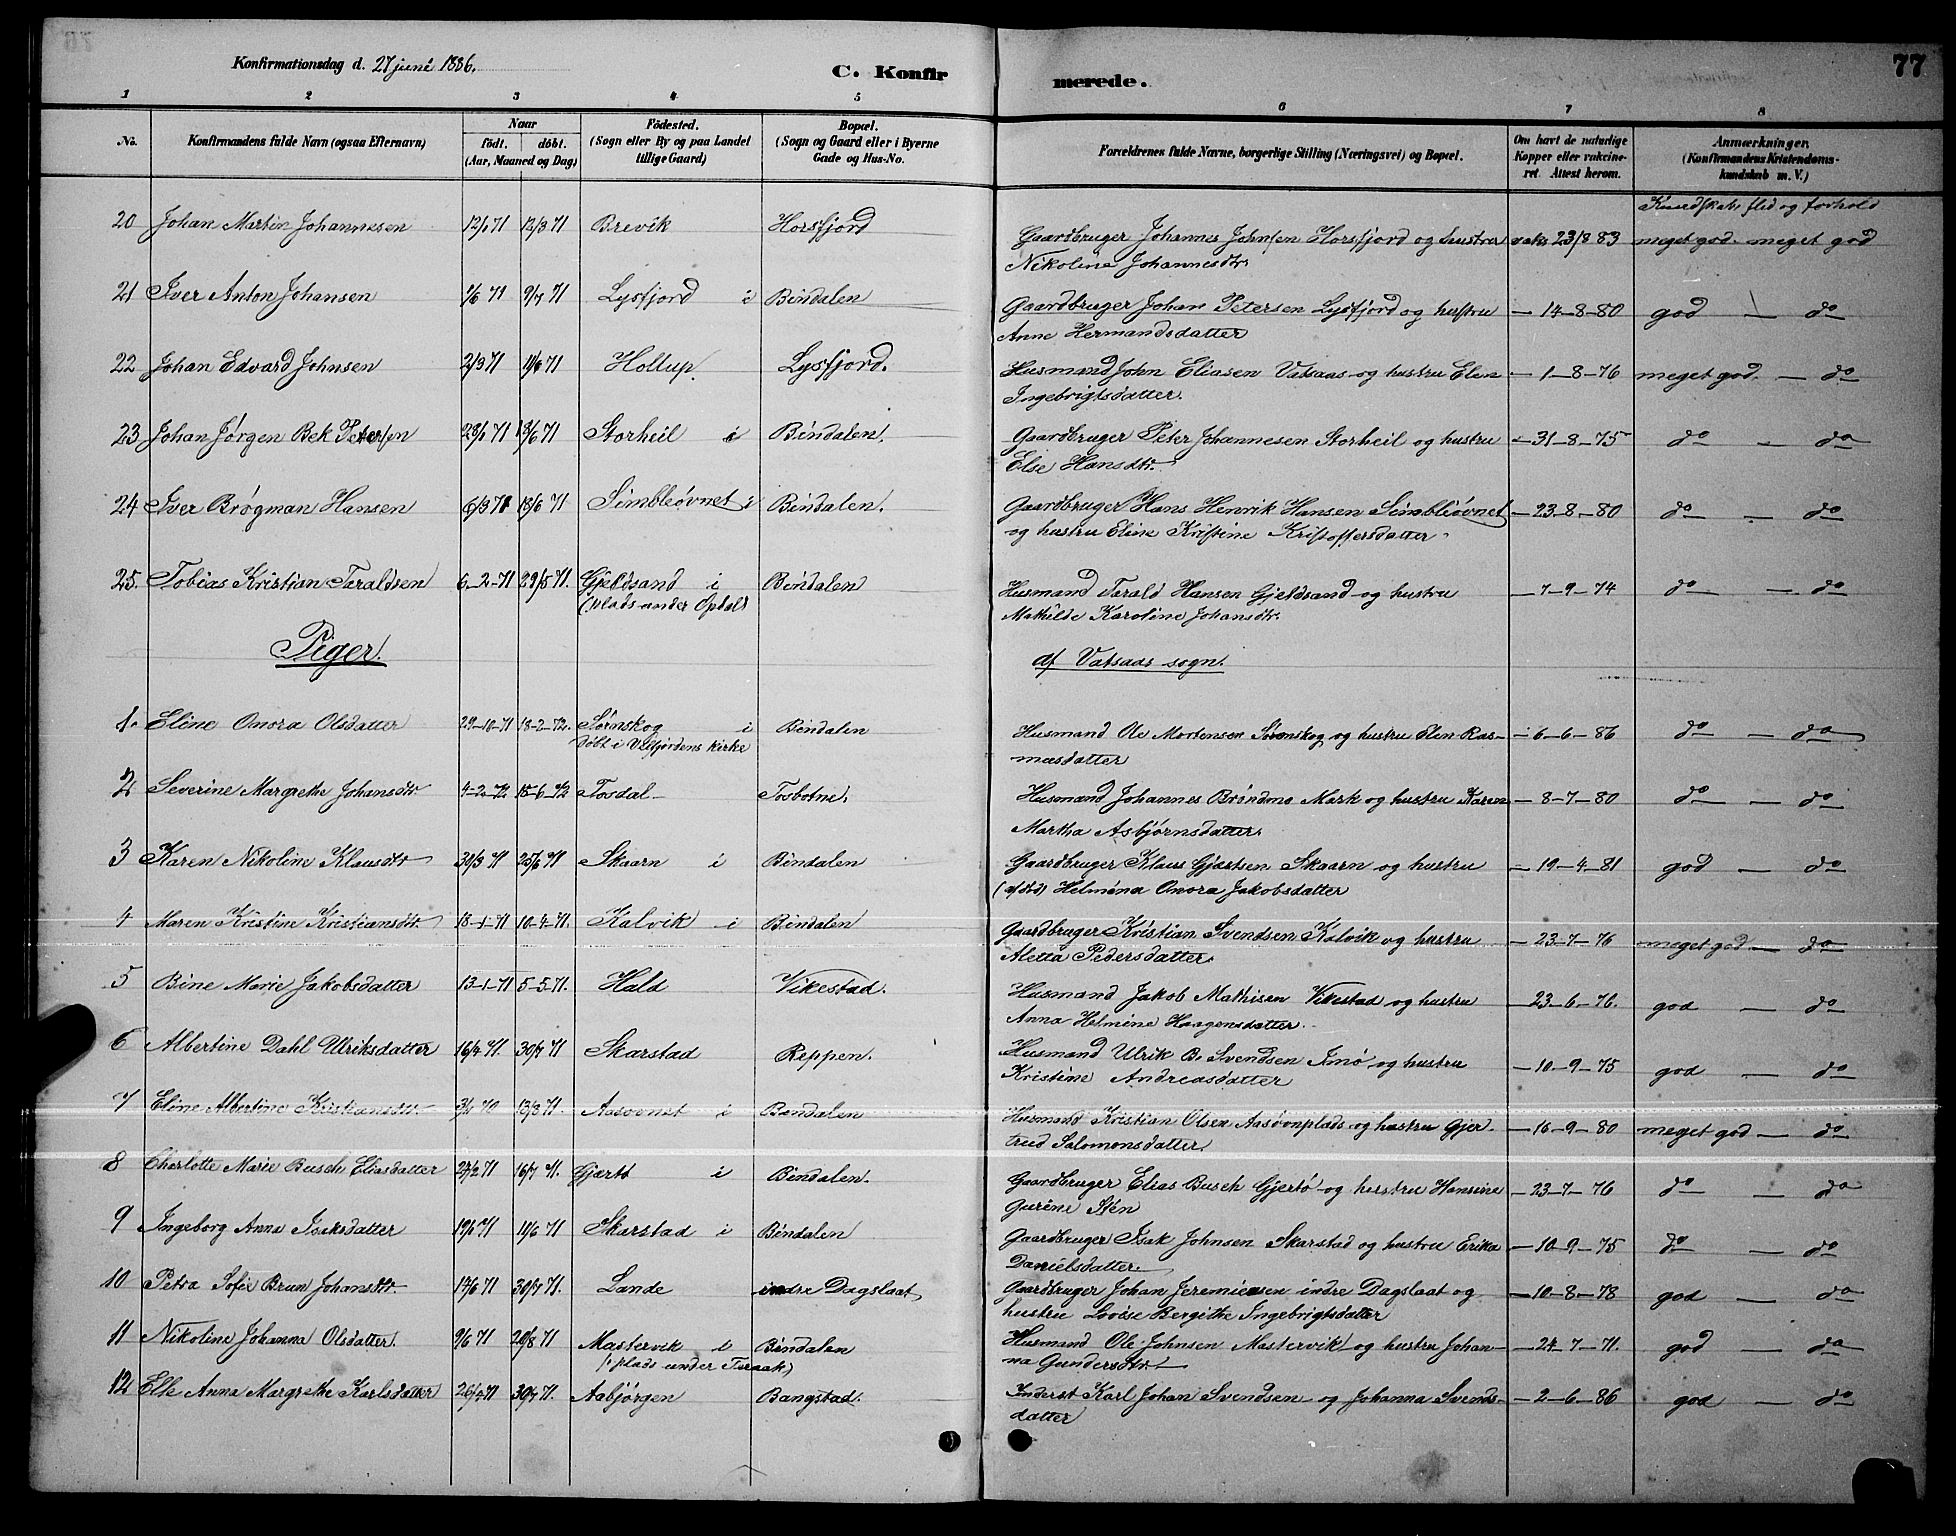 77
Konfirmationsdag d. 27 juni 1886.
C. Konfirmerede.
1 2 3 4 5 6 7 8
No. Konfirmandens fulde Navn (ogsaa Efternavn) Naar født. døbt. (Aar, Maaned og Dag) Fødested. (Sogn eller By og paa Landet tillige Gaard) Bopæl. (Sogn og Gaard eller i Byerne Gade og Hus-No. Forældrenes fulde Navne, borgerlige Stilling (Næringsvei) og Bopæl. Om havt de naturlige Kopper eller vakcineret. Attest herom. Anmærkninger. (Konfirmandens Kristendomskundskab m. V.)
Kundskab, flid og forhold
20 Johan Martin Johannesen 12/1 71 12/3 71 Brevik Horsfjord Gaardbruger Johannes Johnsen Horsfjord og hustru vaks 23/8 83 meget god. meget god
Nikoline Johannesdtr.
21 Iver Anton Johansen 1/6 71 9/7 71 Lysfjord i Bindalen Gaardbruger Johan Petersen Lysfjord og hustru — 14-8-80 god — do
Anne Hermandsdatter
22 Johan Edvard Johnsen 2/3 71 11/6 71 Hollup. Lysfjord. Husmand John Eliasen Vatsaas og hustru Elen — 1-8-76 meget god. — do
Ingebrigtsdatter.
23 Johan Jørgen Bek Petersen 23/1 71 18/6 71 Storheil i Bindalen. Gaardbruger Peter Johannesen Storheil og hustru — 31-8-75 do — do
Else Hansdtr.
24 Iver Brøgman Hansen 6/3 71 18/6 71 Simbleøvnet i Bindalen. Gaardbruger Hans Henrik Hansen Simbleøvnet — 23-8-80 do — do
og hustru Eline Kristine Kristoffersdatter.
25. Tobias Kristian Taraldsen 6-2-71 29/5 71. Gjeldsand i Bindalen Husmand Tarald Hansen Gjeldsand og hustru — 7-9-74 do — do
(plads under Opdal) Mathilde Karoline Johansdtr.
Piger. af Vatsaas sogn.
1. Eline Onora Olsdatter 29-10-71 18-2-72. Sørnskog i Bindalen Husmand Ole Mortensen Sørnskog og hustru Elen Ras- — 6-6-86 do — do
døbt i Velfjordens kirke musdatter
2 Severine Margrethe Johansdtr. 4-2-72 15-6-72 Tosdal Tosbotne. Husmand Johannes Brøndmo Mark og hustru Karen — 8-7-80 do — do
Martha Asbjørnsdatter.
3 Karen Nikoline Klausdtr 30/3 71 25/6 71 Skaarn i Bindalen Gaardbruger Klaus Gjertsen Skaarn og hustru — 19-4-81 god — do
(afdød) Helmina Onora Jakobsdatter
4 Maren Kristine Kristiansdtr. 18-1-71 10-4-71. Kalvik i Bindalen Gaardbruger Kristian Svendsen Kalvik og hustru — 23-7-76 meget god — do
Aletta Pedersdatter.
5 Bine Marie Jakobsdatter 13-1-71 5-5-71. Hald Vikestad. Husmand Jakob Mathisen Vikestad og hustru — 23-6-76. god — do
Anna Helmine Haagensdatter.
6 Albertine Dahl Ulriksdatter 16/4 71. 30/7 71 Skarstad Reppen. Husmand Ulrik B. Svendsen Imø og hustru — 10-9-75 god — do
Kristine Andreasdatter
7 Eline Albertine Kristiansdtr. 70 13/3 71. Aasovnet i Bindalen Husmand Kristian Olsen Aasøvnplads og hustru Gjer- — 16-9-80 meget god — do
trud Salomonsdatter.
8 Charlotte Marie Busch Eliasdatter 27/2 71 16/7 71. Gjertø i Bindalen. Gaardbruger Elias Busch Gjertø og hustru Hansine — 23-7-76 do — do
Gurine Stén
9 Ingeborg Anna Isaksdatter 11/6 71 Skarstad i Bindalen Gaardbruger Isak Johnsen Skarstad og hustru Erika — 10-9-75 do — do
Danielsdatter.
10 Petra Sofie Brun Johansdtr. 17/6 71 30/7 71. Lande indre Dagslaat Gaardbruger Johan Jeremiesen indre Dagslaat og — 10-8-78 god — do
hustru Lovise Bergithe Ingebrigtsdatter
11 Nikoline Johanna Olsdatter. 9/6 71 20/8 71 Mastervik i Bindalen Husmand Ole Johnsen Mastervik og hustru Johan- — 24-7-71. god — do
(plads under Teraak) na Gundersdtr.
12 Elle Anna Margrethe Karlsdatter 71 30/7 71. Aabjørgen Bangstad. Inderst Karl Johan Svendsen og Johanna Svends- — 2-6-86 god — do
datter